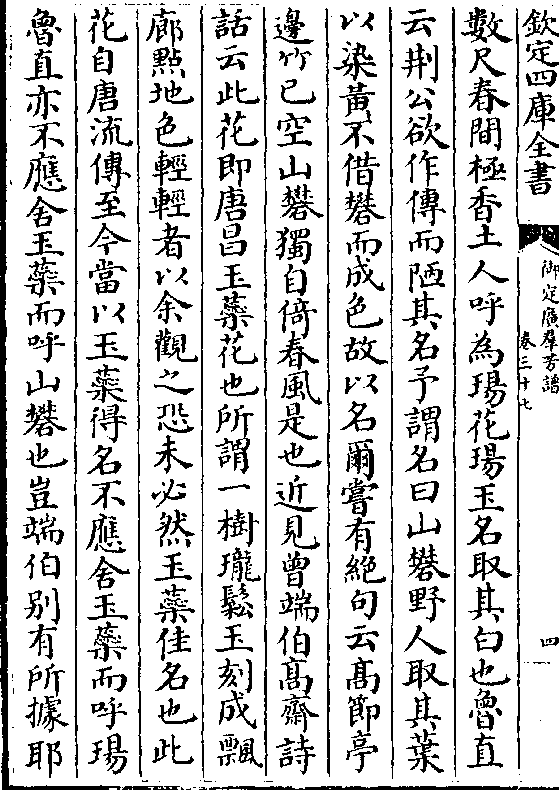 欽定四庫全書
御定廣羣芳譜
卷三十七
四
數尺春間極香土人呼為瑒花瑒玉名取其白也魯直
云荆公欲作傳而陋其名予謂名曰山礬野人取其葉
以染黃不借礬而成色故以名爾嘗有絕句云髙節亭
邊竹已空山礬獨自倚春風是也近見曾端伯髙齋詩
話云此花即唐昌玉蘂花也所謂一樹瓏鬆玉刻成飄
廊㸃地色輕輕者以余觀之恐未必然玉蘂佳名也此
花自唐流傳至今當以玉蘂得名不應舍玉蘂而呼瑒
魯直亦不應舍玉蘂而呼山礬也豈端伯别有所據耶